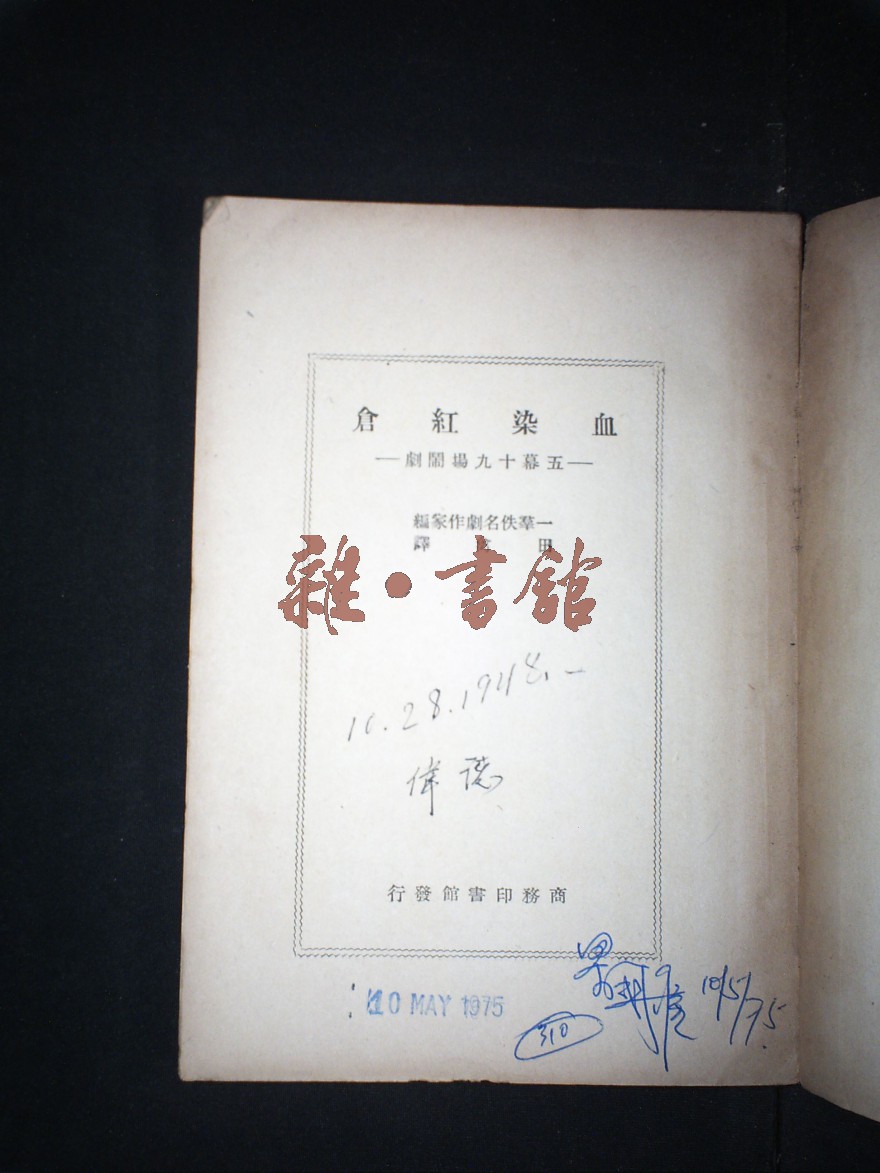 血染紅倉
—五幕十九場鬧劇—
一羣佚名劇作家編
田 譯
雜·書館
10.28.1948.—
偉德
商務印書館發行
10 MAY 1975
10/5/75
310